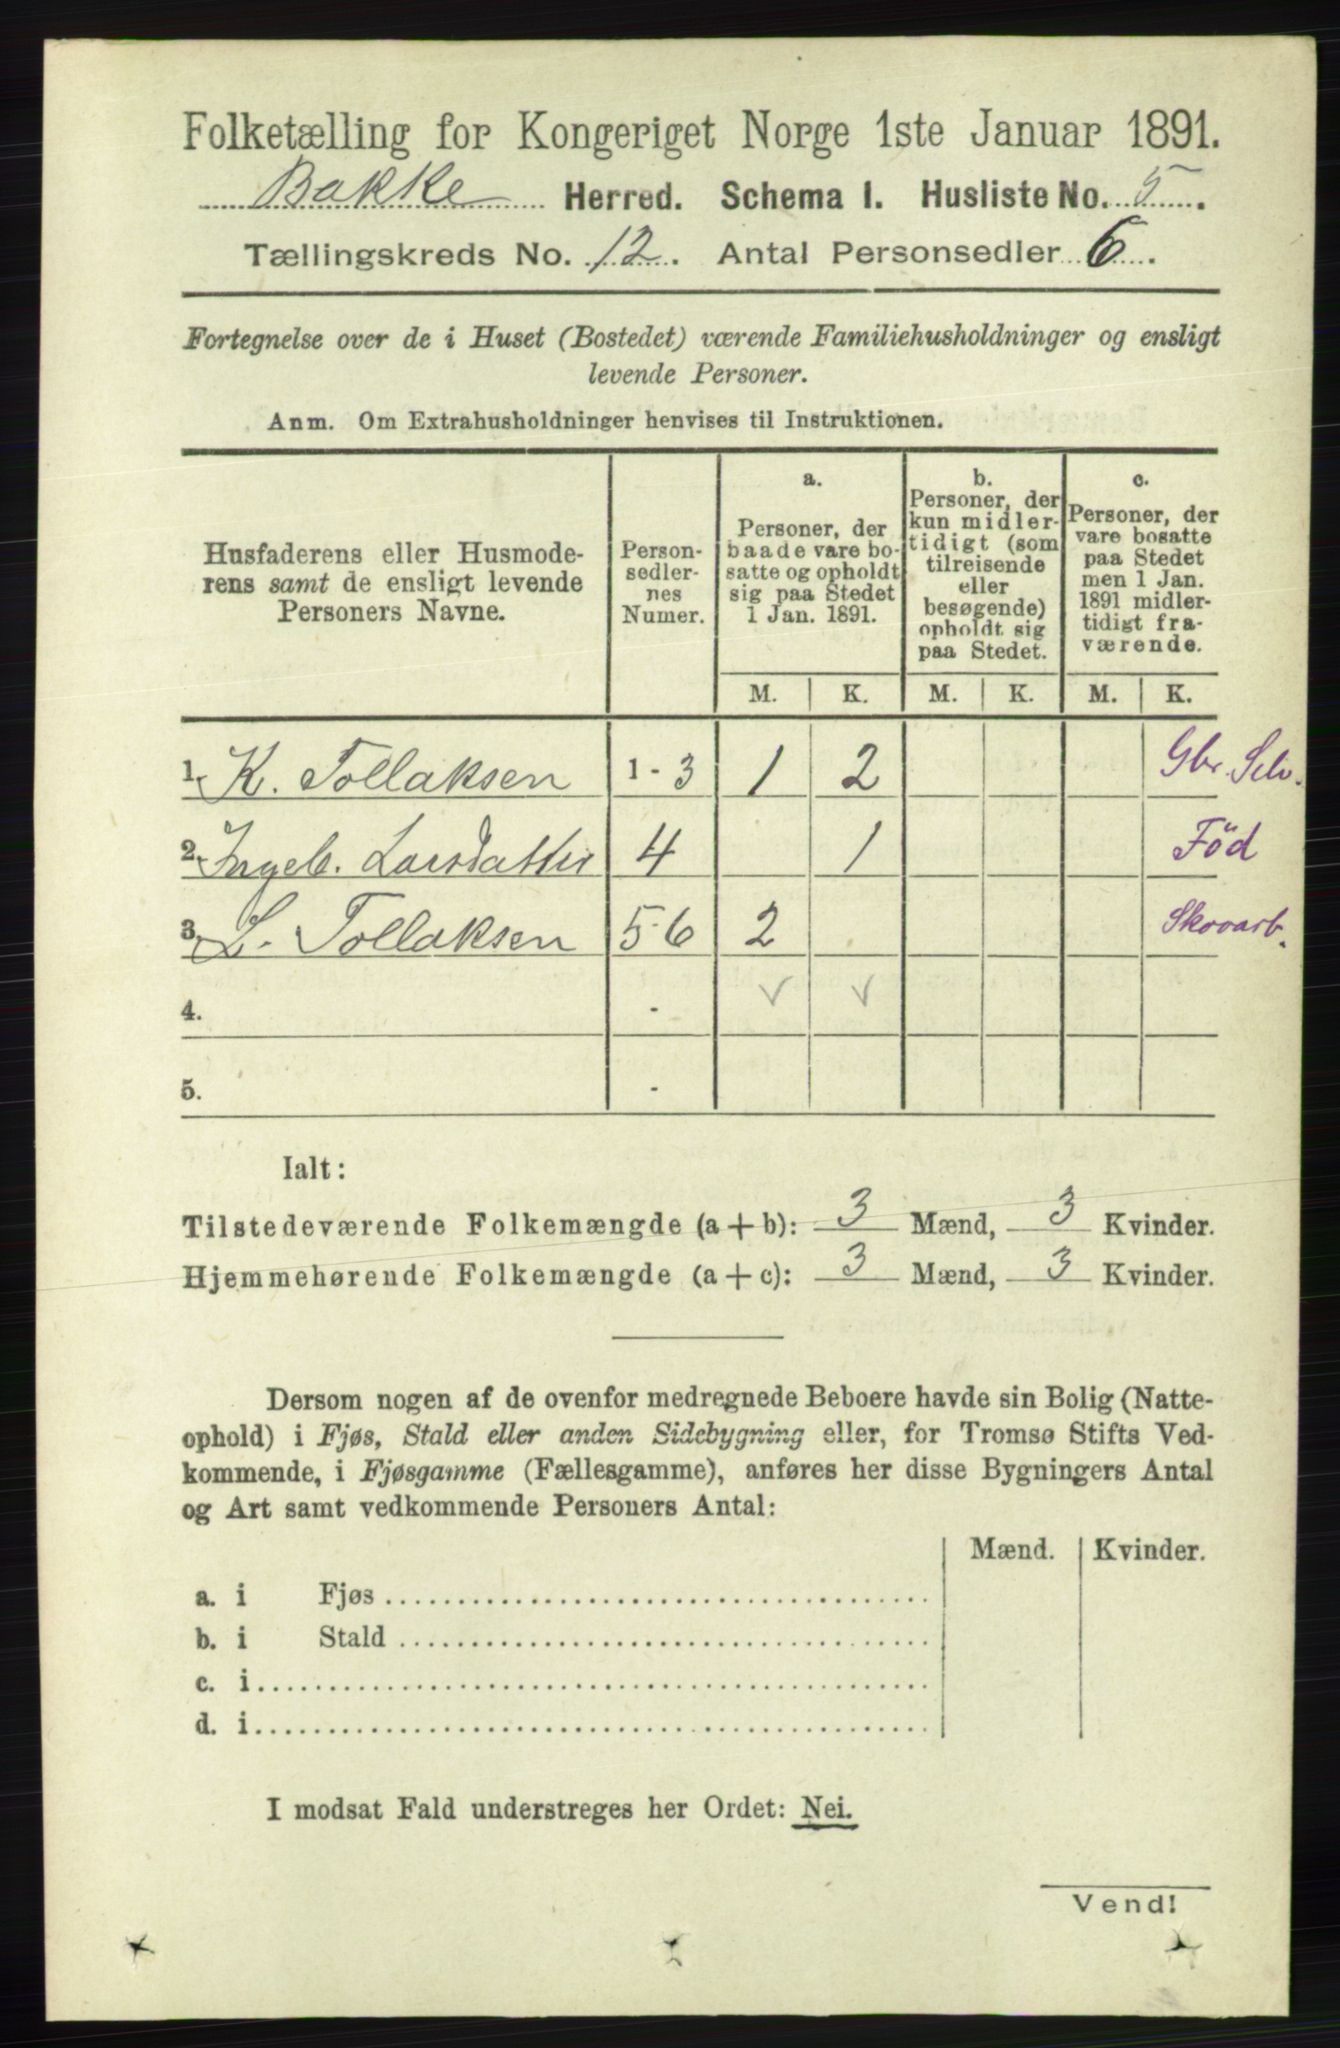 Folketælling for Kongeriget Norge 1ste Januar 1891.
Bakke Herred. Schema I. Husliste No. 5.
Tællingskreds No. 12. Antal Personsedler 6.
Fortegnelse over de i Huset (Bostedet) værende Familiehusholdninger og ensligt
levende Personer.
Anm. Om Extrahusholdninger henvises til Instruktionen.
Husfaderens eller Husmode-
rens samt de ensligt levende
Personers Navne.
Person-
sedler-
nes
Numer.
a.
Personer, der
baade vare bo-
satte og opholdt
sig paa Stedet
1 Jan. 1891.
b.
Personer, der
kun midler-
tidigt (som
tilreisende
eller
besøgende)
opholdt sig
paa Stedet.
c.
Personer, der
vare bosatte
paa Stedet
men 1 Jan.
1891 midler-
tidigt fra-
værende.
M. K. M. K. M. K.
1. K. Tollaksen 1 - 3 1 2 Gbr. Selv.
2. Ingeb. Larsdatter 4 1 Föd
3. L. Tollaksen 5-6 2 Skovarb.
4. - ✓ ✓
5. -
Ialt:
Tilstedeværende Folkemængde (a + b): 3 Mænd, 3 Kvinder.
Hjemmehørende Folkemængde (a + c): 3 Mænd, 3 Kvinder.
Dersom nogen af de ovenfor medregnede Beboere havde sin Bolig (Natte-
ophold) i Fjøs, Stald eller anden Sidebygning eller, for Tromsø Stifts Ved-
kommende, i Fjøsgamme (Fællesgamme), anføres her disse Bygningers Antal
og Art samt vedkommende Personers Antal:
Mænd. Kvinder.
a. i Fjøs
b. i Stald
c. i
d. i
I modsat Fald understreges her Ordet: Nei.
Vend!